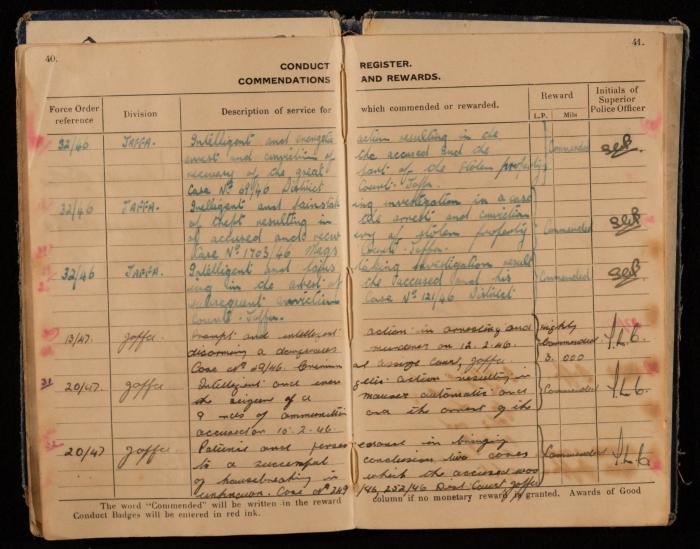 40.
41.
CONDUCT REGISTER.
COMMENDATIONS AND REWARDS.
Force Order reference
Division
Description of service for which commended or rewarded.
Reward
L.P. Mils
Initials of Superior Police Officer
32/46 JAFFA. Intelligent and energetic action resulting in the
arrest and conviction of the accused and the
recovery of the great part of the stolen property
Case No 69/46 District Court - Jaffa.
Commended
32/46 JAFFA. Intelligent and painstaking investigation in a case
of theft resulting in the arrest and conviction
of accused and recovery of stolen property
Case No 1703/46 Mags Court - Jaffa.
Commended
32/46 JAFFA. Intelligent and painstaking investigation result
ing in the arrest of the accused and his
subsequent conviction Case No 121/46 District
Court - Jaffa.
Commended
13/47. Jaffa Prompt and intelligent action in arresting and
disarming a dangerous murderer on 12.2.46.
Case No 29/46. Criminal assize Court, Jaffa
Highly Commended
3. 000
31 20/47. Jaffa Intelligent and energetic action resulting in
the seizure of a mauser automatic and
9 rds of ammunition and the arrest of the
accused on 10.2.46.
Commended
20/47 Jaffa Patience and perseverance in bringing
to a successful conclusion two cases
of housebreaking in which the accused was
unknown. Case No 249/46, 252/46 Dist Court Jaffa
Commended
The word "Commended" will be written in the reward column if no monetary reward is granted. Awards of Good
Conduct Badges will be entered in red ink.